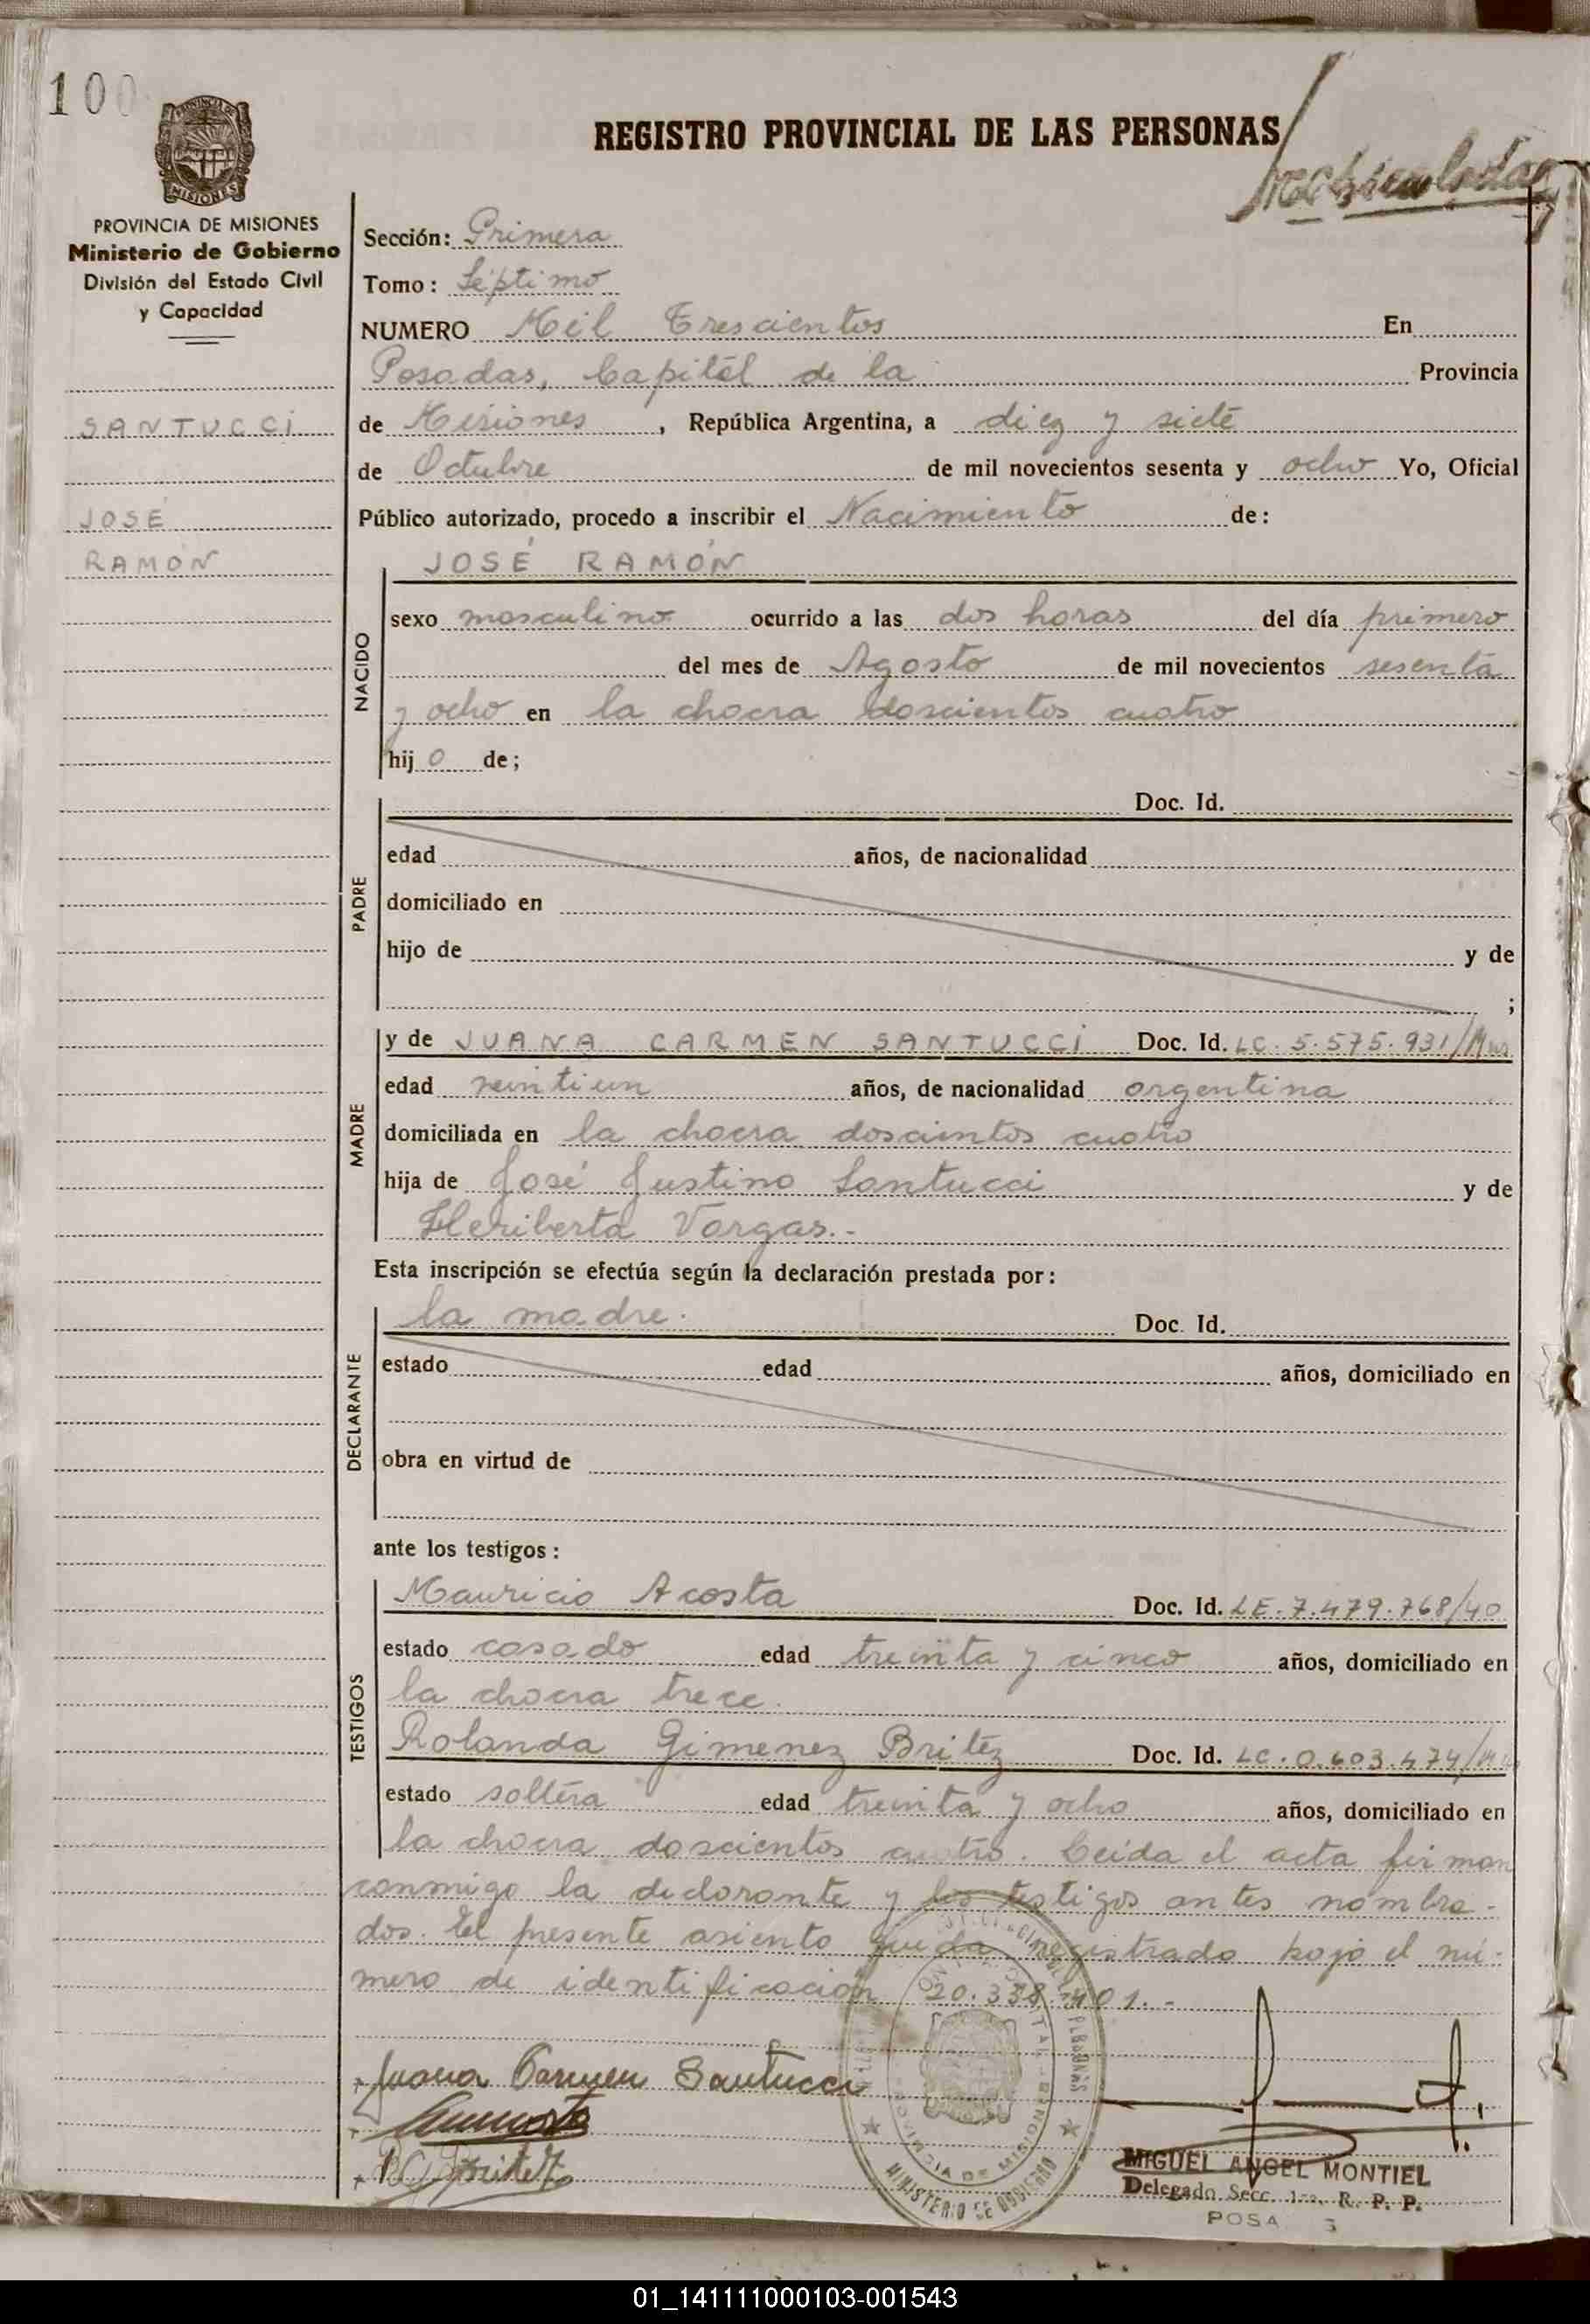 100
REGISTRO PROVINCIAL DE LAS PERSONAS
PROVINCIA DE MISIONES
Ministerio de Gobierno
División del Estado Civil
y Capacidad
SANTUCCI
JOSÉ
RAMÓN
Sección: Primera
Tomo: Séptimo
NUMERO Mil Trescientos En
Posadas, Capital de la Provincia
de Misiones, República Argentina, a diez y siete
de Octubre de mil novecientos sesenta y ocho Yo, Oficial
Público autorizado, procedo a inscribir el Nacimiento de:
NACIDO
JOSÉ RAMÓN
sexo masculino ocurrido a las dos horas del día primero
del mes de Agosto de mil novecientos sesenta
y ocho en la chacra doscientos cuatro
hij o de;
PADRE
Doc. Id.
edad años, de nacionalidad
domiciliado en
hijo de y de
;
MADRE
y de JUANA CARMEN SANTUCCI Doc. Id. LC. 5.575.931/
edad veintiun años, de nacionalidad argentina
domiciliada en la chacra doscientos cuatro
hija de José Justino Santucci y de
Heriberta Vargas.-
Esta inscripción se efectúa según la declaración prestada por:
DECLARANTE
la madre. Doc. Id.
estado edad años, domiciliado en
obra en virtud de
ante los testigos:
TESTIGOS
Mauricio Acosta Doc. Id. LE. 7.479.768/40
estado casado edad treinta y cinco años, domiciliado en
la chacra trece.
Rolanda Gimenez Britez Doc. Id. LC. 0.603.474/
estado soltera edad treinta y ocho años, domiciliado en
la chacra doscientos cuatro. Leída el acta firman
conmigo la declarante y los testigos antes nombra-
dos. El presente asiento queda registrado bajo el nú-
mero de identificación 20.338.401.-
Juana Carmen Santucci
MINISTERIO DE GOBIERNO
PROVINCIA DE MISIONES
MIGUEL ANGEL MONTIEL
Delegado Secc. 1ra. R. P. P.
POSA
01_141111000103-001543